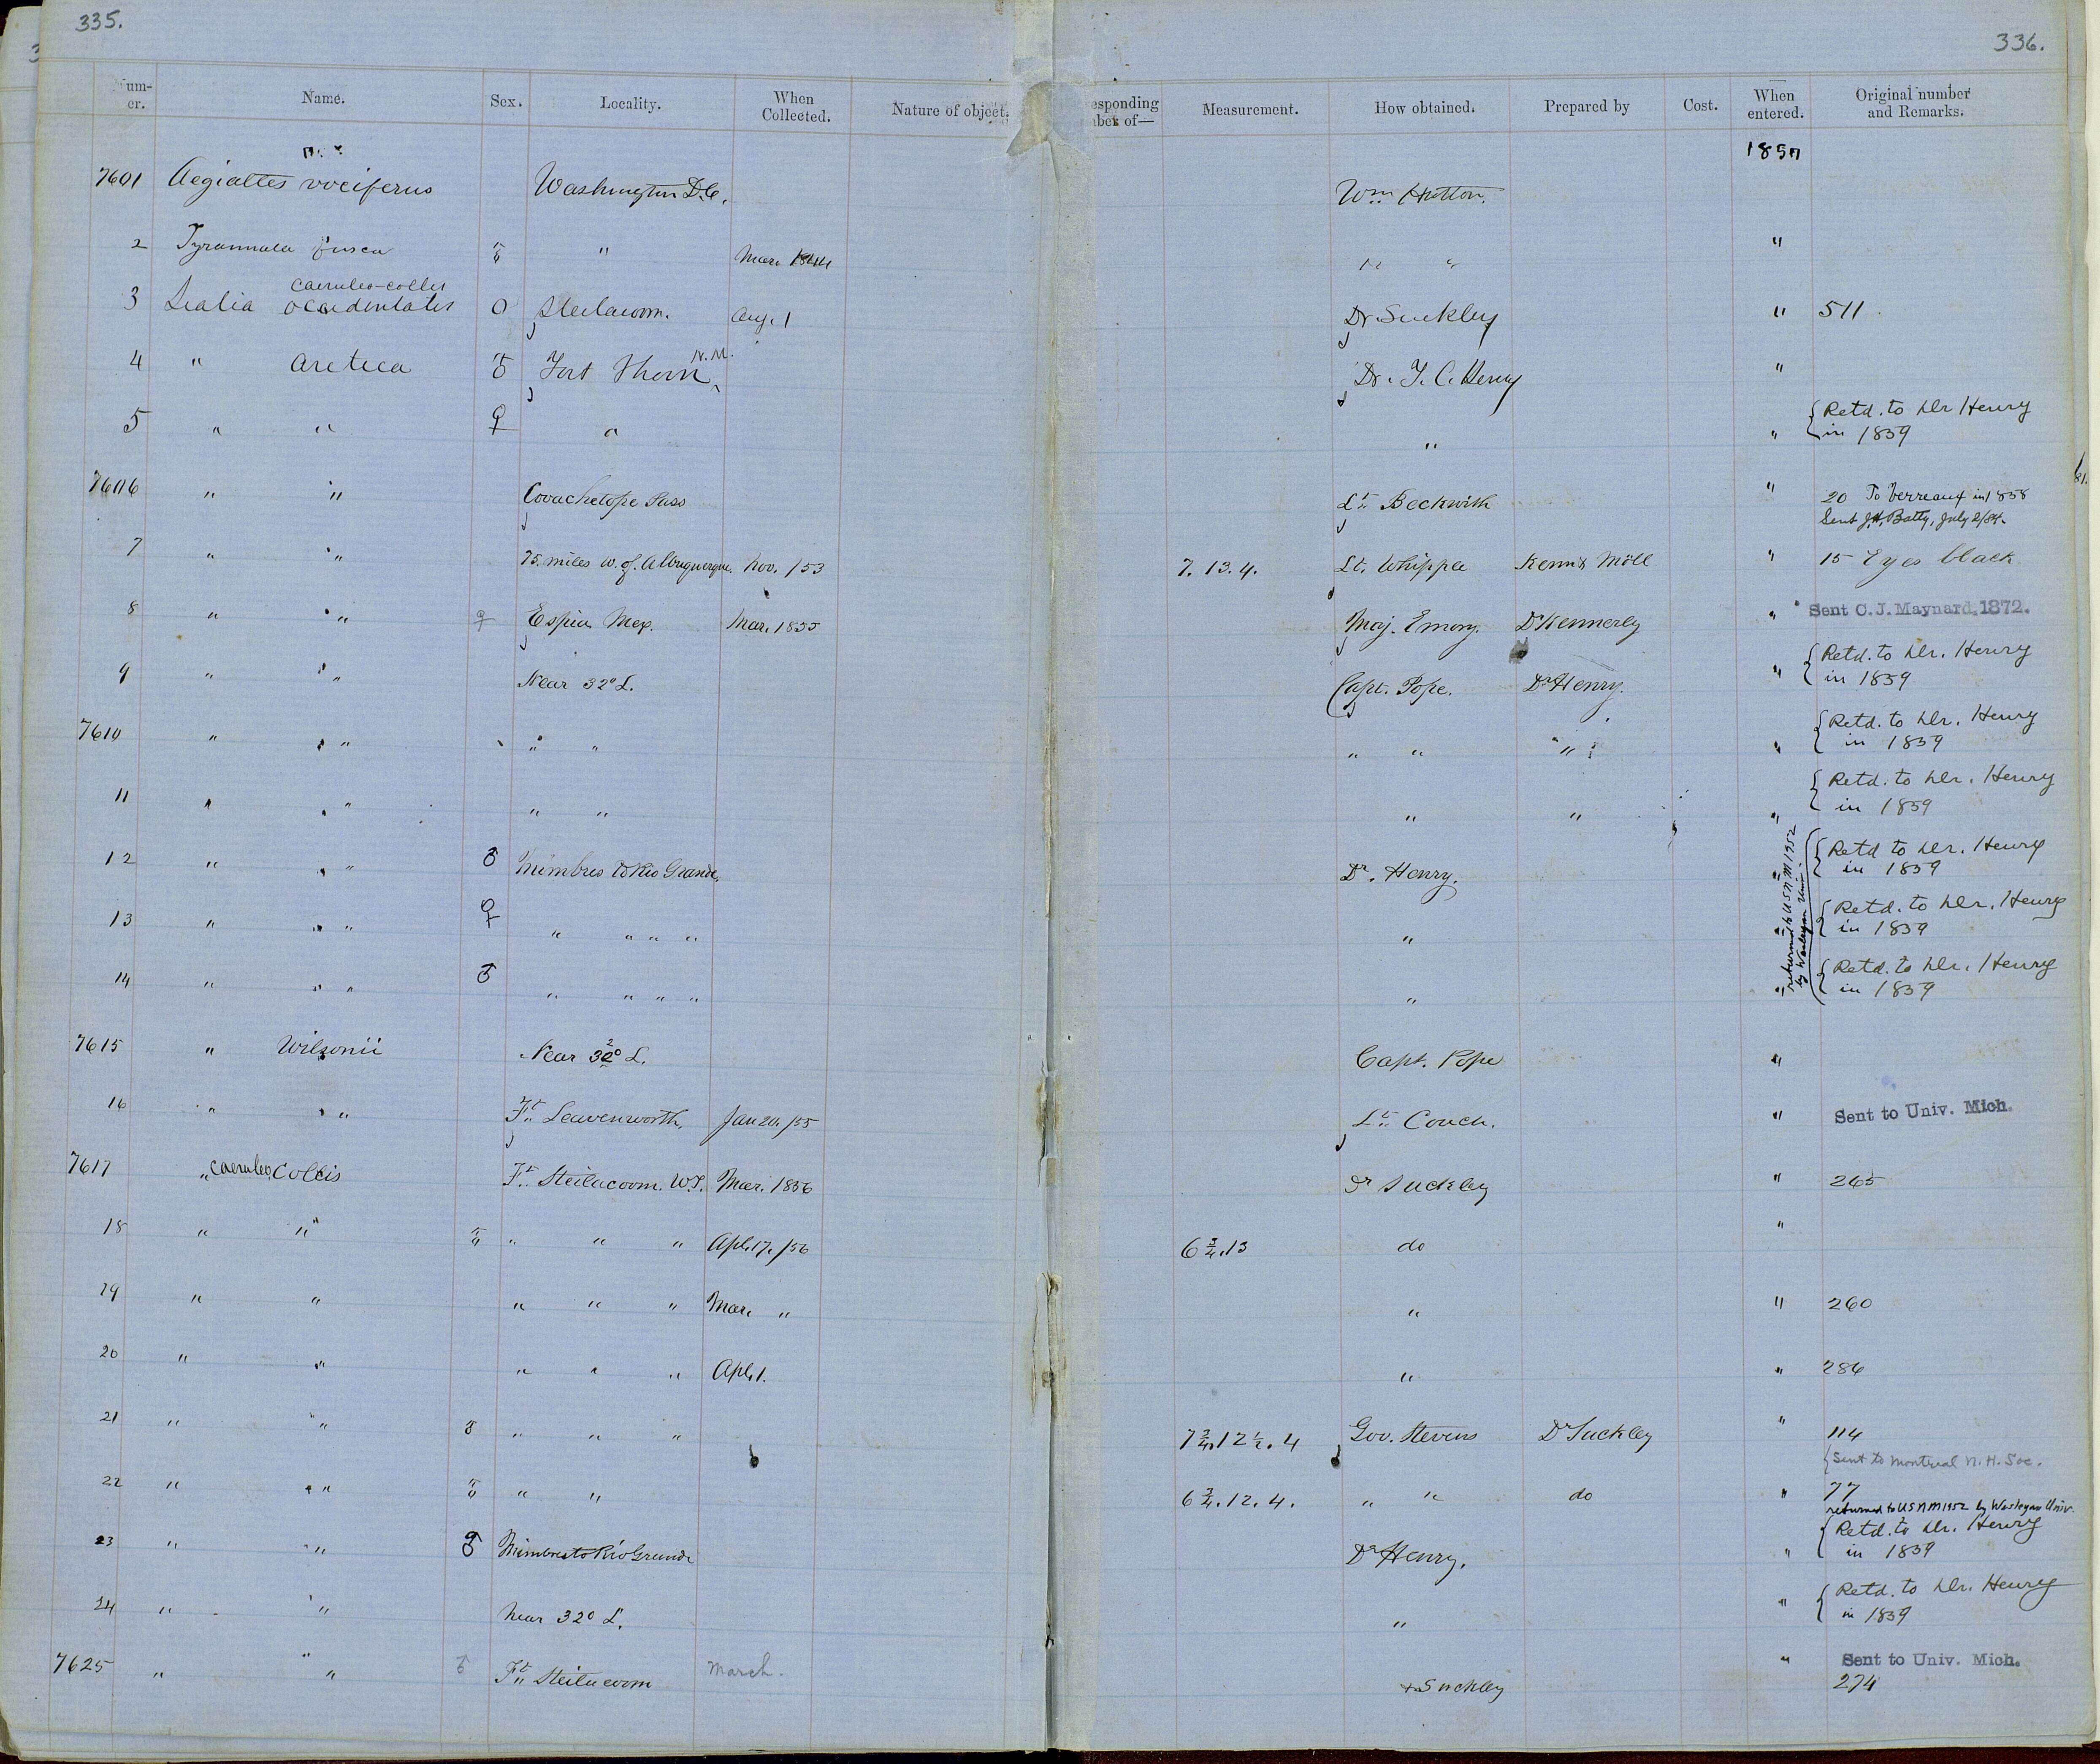 335.
336.
Num-
er.
Name.
Sex.
Locality.
When
Collected.
Nature of object.
esponding
ber of—
Measurement.
How obtained.
Prepared by
Cost.
When
entered.
Original number
and Remarks.
1857
7601 Aegialtes vociferus Washington D.C. Wm Hutton.
2 Tyrannula fusca " Mar. 1844 " " "
caeruleo-collis
3 Sialia occidentalis O Steilacoom. Aug. 1 Dr Suckley " 511
4 " arctica ♂ Fort Thorn, N.M. Dr. T. C. Henry "
5 " " ♀ " " " { Retd. to Dr Henry
in 1859
7606 " " Covachetope Pass Lt. Beckwith " 20 To Verreaux in 1858
Sent J.H. Batty, July 2/84.
7 " " 75 miles w. of Albuquerque. Nov. /53 7. 13. 4. Lt. Whipple Kenn & Möll " 15 Eyes black
8 " " ♀ Espia Mex. Mar. 1855 Maj. Emory. Dr Kennerly " Sent C. J. Maynard, 1872.
9 " " Near 32° L. Capt. Pope. Dr Henry. " { Retd. to Dr. Henry
in 1859
7610 " " " " " " " " { Retd. to Dr. Henry
in 1859
11 " " " " " " " { Retd. to Dr. Henry
in 1859
12 " " ♂ Mimbres to Rio Grande. Dr. Henry. " { Retd to Dr. Henry
in 1859
13 " " ♀ " " " " " " { Retd. to Dr. Henry
in 1859
14 " " ♂ " " " " " " { Retd. to Dr. Henry
in 1859
returned to USNM 1952
by Wesleyan Univ.
7615 " Wilsonii Near 32° L. Capt. Pope "
16 " " Ft. Leavenworth, Jan 20. /55 Lt. Couch. " Sent to Univ. Mich.
7617 " caeruleo Collis Ft. Steilacoom. W.T. Mar. 1856 Dr Suckley " 265
18 " " " " " Apl. 17. /56 6 3/4. 13 do "
19 " " " " " Mar. " " " 260
20 " " " " " Apl. 1. " " 286
21 " " ♂ " " " 7 3/4. 12 1/2. 4 Gov. Stevens Dr Suckley " 114
{ Sent to Montreal N. H. Soc.
22 " " " " 6 3/4. 12. 4. " " do " 77
returned to USNM 1952 by Wesleyan Univ.
23 " " Mimbres to Rio Grande Dr Henry. " { Retd. to Dr. Henry
in 1859
24 " " Near 32° L. " " { Retd. to Dr. Henry
in 1859
7625 " " ♂ Ft. Steilacoom March. Suckley " Sent to Univ. Mich.
274